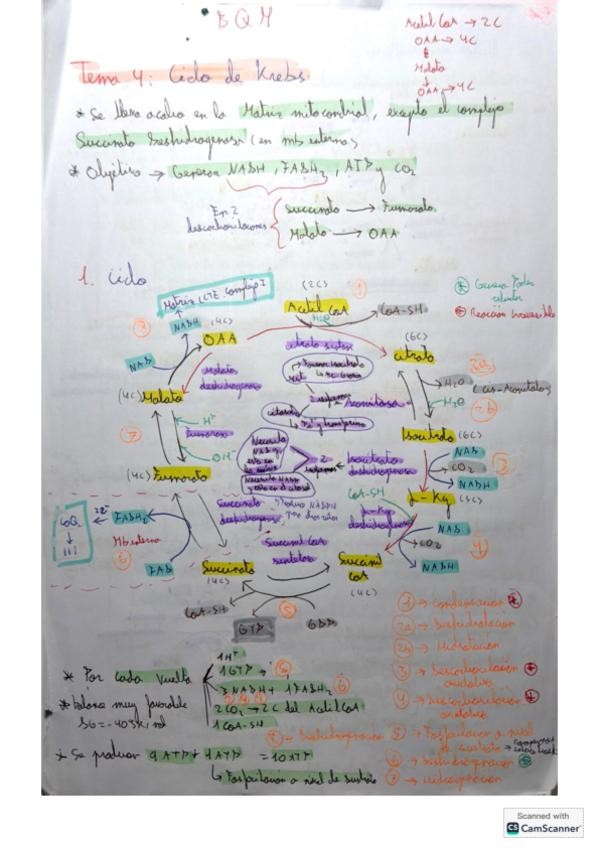 BQM
Acetil CoA → 2C
OAA → 4C
Malato
OAA → 4C
Tema 4: Ciclo de Krebs.
* Se lleva a cabo en la Matriz mitocondrial, excepto el complejo
Succinato Deshidrogenasa (en mb externa)
* Objetivo → Generar NADH, FADH2, ATP y CO2
En 2 descarboxilaciones
Succinato → Fumarato
Malato → OAA
1. Ciclo
Matriz (CTE. Complejo I
(2C)
1
Genera Poder
reductor
Reacción Irreversible
Acetil CoA
CoA-SH
NADH
(4C)
OAA
H2O
citrato sintasa
(6C)
citrato
8
NAD
Malato deshidrogenasa
2a
H2O (cis-Aconitato)
(4C) Malato
2 isoformas
Aconitasa
H2O
2b
citosólica
7
H+
Fumarasa
OH-
Isocitrato (6C)
NAD
CO2
NADH
3
2 isoformas
Isocitrato deshidrogenasa
(4C) Fumarato
CoA-SH
α-Kg (5C)
CoQ
2e-
FADH2
Succinato deshidrogenasa
α-Kg deshidrogenasa
NAD
CO2
4
III
Mb externa
6
FAD
Succinil CoA sintetasa
NADH
Succinato
(4C)
Succinil CoA
(4C)
CoA-SH
5
GTP
GDP
1 → Condensación
2a → Deshidratación
2b → Hidratación
3 → Descarboxilación oxidativa
4 → Descarboxilación oxidativa
5 → Fosforilación a nivel de sustrato
6 → Deshidrogenación
7 → Hidratación
8 → Deshidrogenación
* Por cada Vuelta
1H+
1GTP → 5
3 NADH + 1 FADH2 6
2CO2 → 2C del Acetil CoA
1 CoA-SH
* Balance muy favorable
* Se producen 9 ATP + 1 ATP = 10 ATP
↳ Fosforilación a nivel de sustrato
Scanned with
CS CamScanner